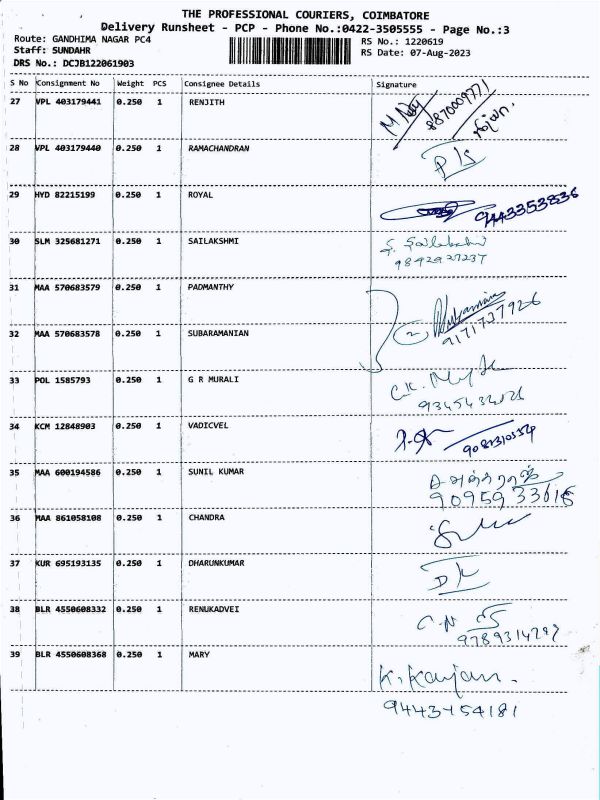 THE PROFESSIONAL COURIERS, COIMBATORE
Delivery Runsheet - PCP - Phone No.:0422-3505555 - Page No.:3
Route: GANDHIMA NAGAR PC4
RS No.: 1220619
Staff: SUNDAHR
RS Date: 07-Aug-2023
DRS No.: DCJB122061903
S No Consignment No Weight PCS Consignee Details Signature
27 VPL 403179441 0.250 1 RENJITH 8870009771
28 VPL 403179440 0.250 1 RAMACHANDRAN
29 HYD 82215199 0.250 1 ROYAL 9443353836
30 SLM 325681271 0.250 1 SAILAKSHMI
31 MAA 570683579 0.250 1 PADMANTHY
32 MAA 570683578 0.250 1 SUBARAMANIAN 9171737926
33 POL 1585793 0.250 1 G R MURALI
34 KCM 12848903 0.250 1 VADICVEL
35 MAA 600194586 0.250 1 SUNIL KUMAR
36 MAA 861058108 0.250 1 CHANDRA
37 KUR 695193135 0.250 1 DHARUNKUMAR DK
38 BLR 4550608332 0.250 1 RENUKADVEI
39 BLR 4550608368 0.250 1 MARY
9443454181